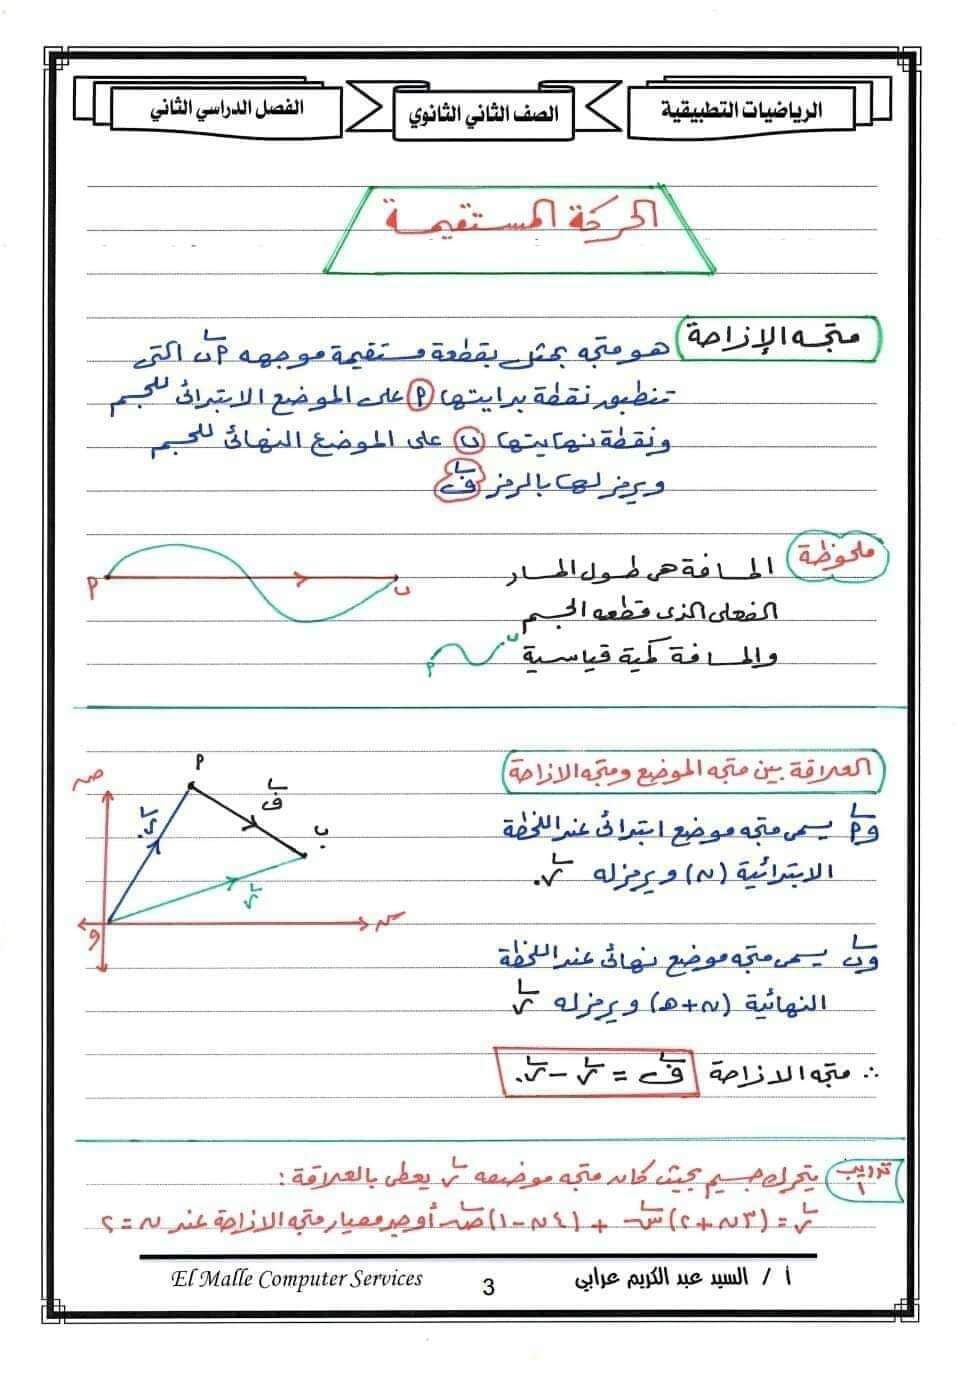 الرياضيات التطبيقية
الصف الثاني الثانوي
الفصل الدراسي الثاني
الحركة المستقيمة
متجه الإزاحة
هو متجه يمثل بقطعة مستقيمة موجهه P ب التى
تنطبق نقطة بدايتها P على الموضع الابتدائى للجسم
ونقطة نهايتها ب على الموضع النهائى للجسم
ويرمز لها بالرمز ف
ملحوظة
المسافة هى طول المسار
الفعلى الذى قطعه الجسم
والمسافة كمية قياسية
P
ب
P
ب
العلاقة بين متجه الموضع ومتجه الازاحة
وP يسمى متجه موضع ابتدائى عند اللحظة
الابتدائية (ن) ويرمز له ر.
وب يسمى متجه موضع نهائى عند اللحظة
النهائية (ن+ه) ويرمز له ر
∴ متجه الازاحة ف = ر - ر.
ص
P
ف
ر.
ب
ر
س
و
تدريب ١
يتحرك جسيم بحيث كان متجه موضعه ر يعطى بالعلاقة :
ر = (٣ن+٢) س + (٤ن-١) ص أوجد معيار متجه الازاحة عند ن = ٢
أ / السيد عبد الكريم عرابي
3
El Malle Computer Services